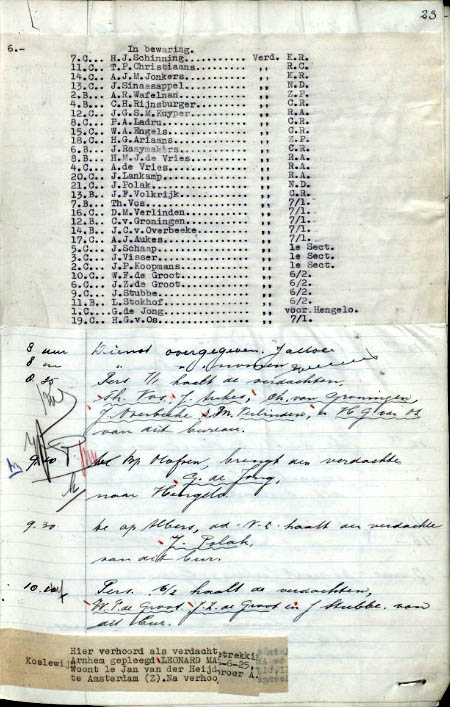 23
6.-
In bewaring.
7.C... H.J.Schinning........... Verd. K.R.
11.C... T.P.Christiaans.......... ,, R.C.
14.C... A.J.M.Jonkers............ ,, K.R.
13.C... J.Sinaasappel............ ,, N.D.
2.B... A.R.Wafelman............. ,, Z.P.
4.B... C.H.Rijnsburger.......... ,, C.R.
12.C... J.G.S.M.Kuyper........... ,, R.A.
8.C... P.A.Ladru................ ,, C.R.
15.C... W.A.Engels............... ,, C.R.
18.C... H.G.Ariaans.............. ,, Z.P.
6.B... J.Raaymakers............. ,, C.R.
8.B... H.M.J.de Vries........... ,, R.A.
4.C... A.de Vries............... ,, R.A.
20.C... J.Lankamp................ ,, R.A.
21.C... J.Polak.................. ,, N.D.
13.B... J.F.Volkrijk............. ,, C.R.
7.B... Th.Vos................... ,, 7/1.
16.C... D.M.Verlinden............ ,, 7/1.
12.B... C.v.Groningen............ ,, 7/1.
14.B... J.C.v.Overbeeke.......... ,, 7/1.
17.C... A.J.Aukes................ ,, 7/1.
5.C... J.Schaap................. ,, 1e Sect.
3.C... J.Visser................. ,, 1e Sect.
2.C... J.P.Koopmans............. ,, 1e Sect.
10.C... W.F.de Groot............. ,, 6/2.
6.C... J.Z.de Groot............. ,, 6/2.
9.C... I.Stubbe................. ,, 6/2.
11.B... L.Stokhof................ ,, 6/2.
1.C... G.de Jong................ ,, voor.Hengelo.
19.C... H.G.v.Os................. ,, 7/1.
8 uur Dienst overgegeven.
8 uur " "
8.35 Pers. 7/1 haalt de verdachten,
Th. Vos, J. Aukes, Ch. van Groningen
J. Overbeeke, D.M. Verlinden, en H G van Os
van dit bureau.
9.20 brengt den verdachte
G. de Jong,
naar Hengelo.
9.30 De ap Albers, haalt den verdachte
J. Polak,
van dit bur.
10. Pers. 6/2 haalt de verdachten,
W.F. de Groot, J.Z. de Groot en J Stubbe van
dit bur.
Hier verhoord als verdacht
Koelewij Arnhem gepleegd LEONARD MA
woont le Jan van der Heijd
te Amsterdam (Z).Na verhoo
trekki
-6-25,
roer A.